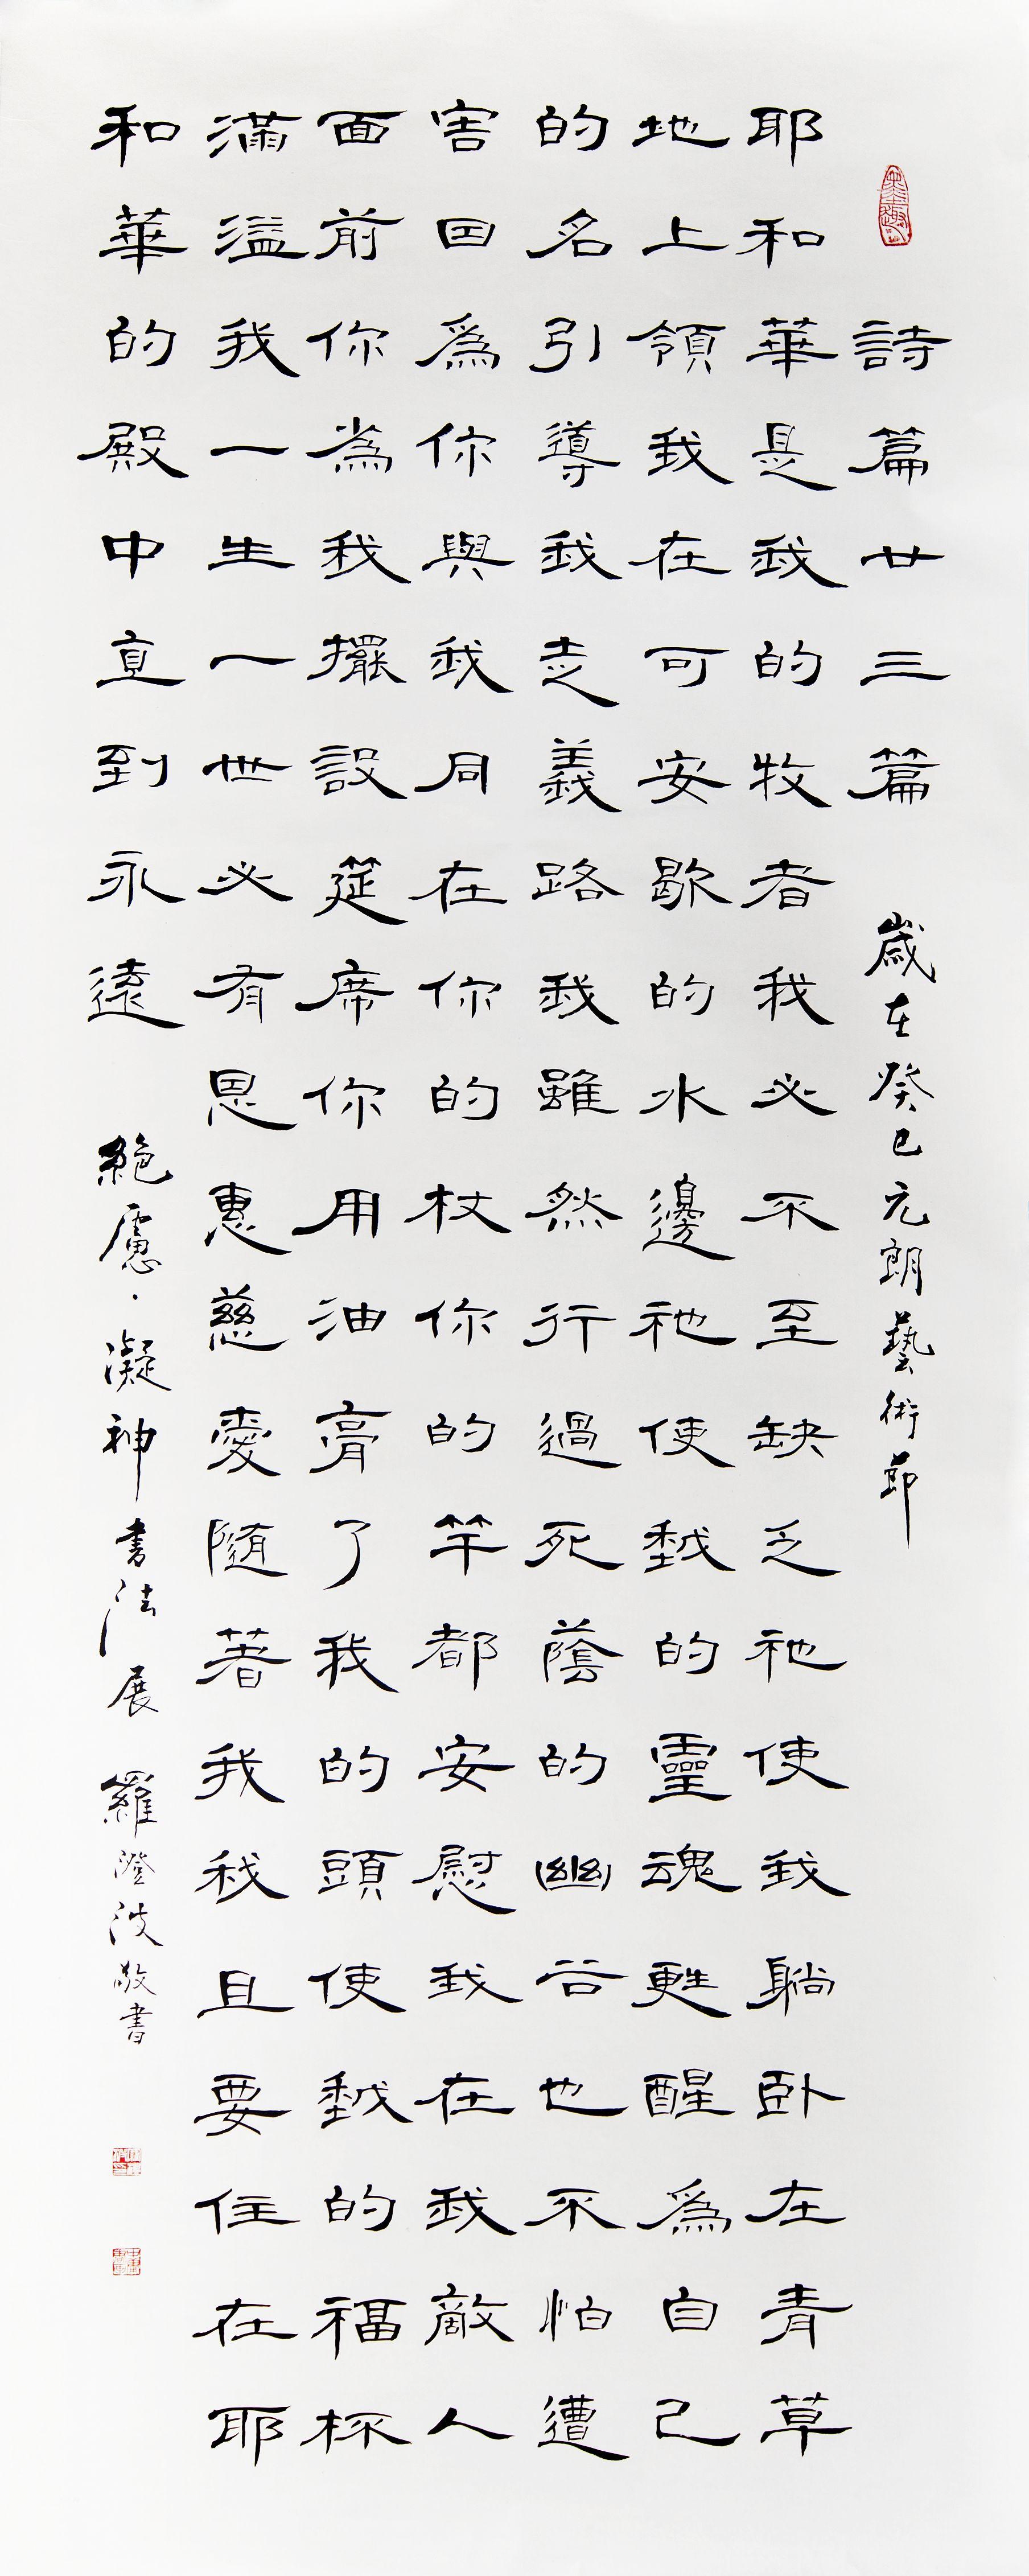 詩篇廿三篇 歲在癸巳元朗藝術節
耶和華是我的牧者我必不至缺乏祂使我躺卧在青草
地上領我在可安歇的水邊祂使我的靈魂甦醒爲自己
的名引導我走義路我雖然行過死蔭的幽谷也不怕遭
害因爲你與我同在你的杖你的竿都安慰我在我敵人
面前你為我擺設筵席你用油膏了我的頭使我的福杯
滿溢我一生一世必有恩惠慈愛隨著我我且要住在耶
和華的殿中直到永遠 絕慮·凝神書法展 羅澄波敬書